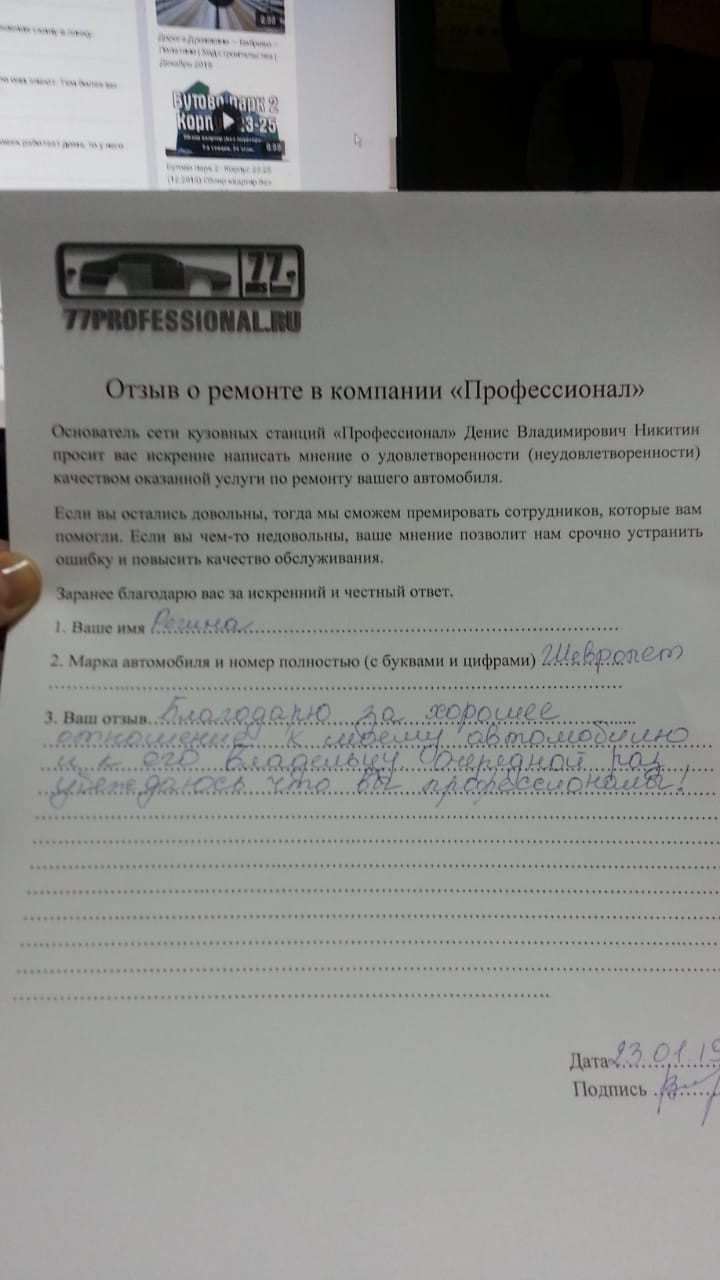 8:58
Дорога Дрожжино – Бабушка –
Бутово парк 2
Корп 23-25
8:58
Бутово парк 2 Корпус 23-25
77
RUS
77PROFESSIONAL.RU
Отзыв о ремонте в компании «Профессионал»
Основатель сети кузовных станций «Профессионал» Денис Владимирович Никитин
просит вас искренне написать мнение о удовлетворенности (неудовлетворенности)
качеством оказанной услуги по ремонту вашего автомобиля.
Если вы остались довольны, тогда мы сможем премировать сотрудников, которые вам
помогли. Если вы чем-то недовольны, ваше мнение позволит нам срочно устранить
ошибку и повысить качество обслуживания.
Заранее благодарю вас за искренний и честный ответ.
1. Ваше имя Регина
2. Марка автомобиля и номер полностью (с буквами и цифрами) Шевролет
3. Ваш отзыв Благодарю за хорошее
отношение к моему автомобилю
и к его владельцу очередной раз
убеждаюсь что вы профессионалы!
Дата 23.01.19
Подпись